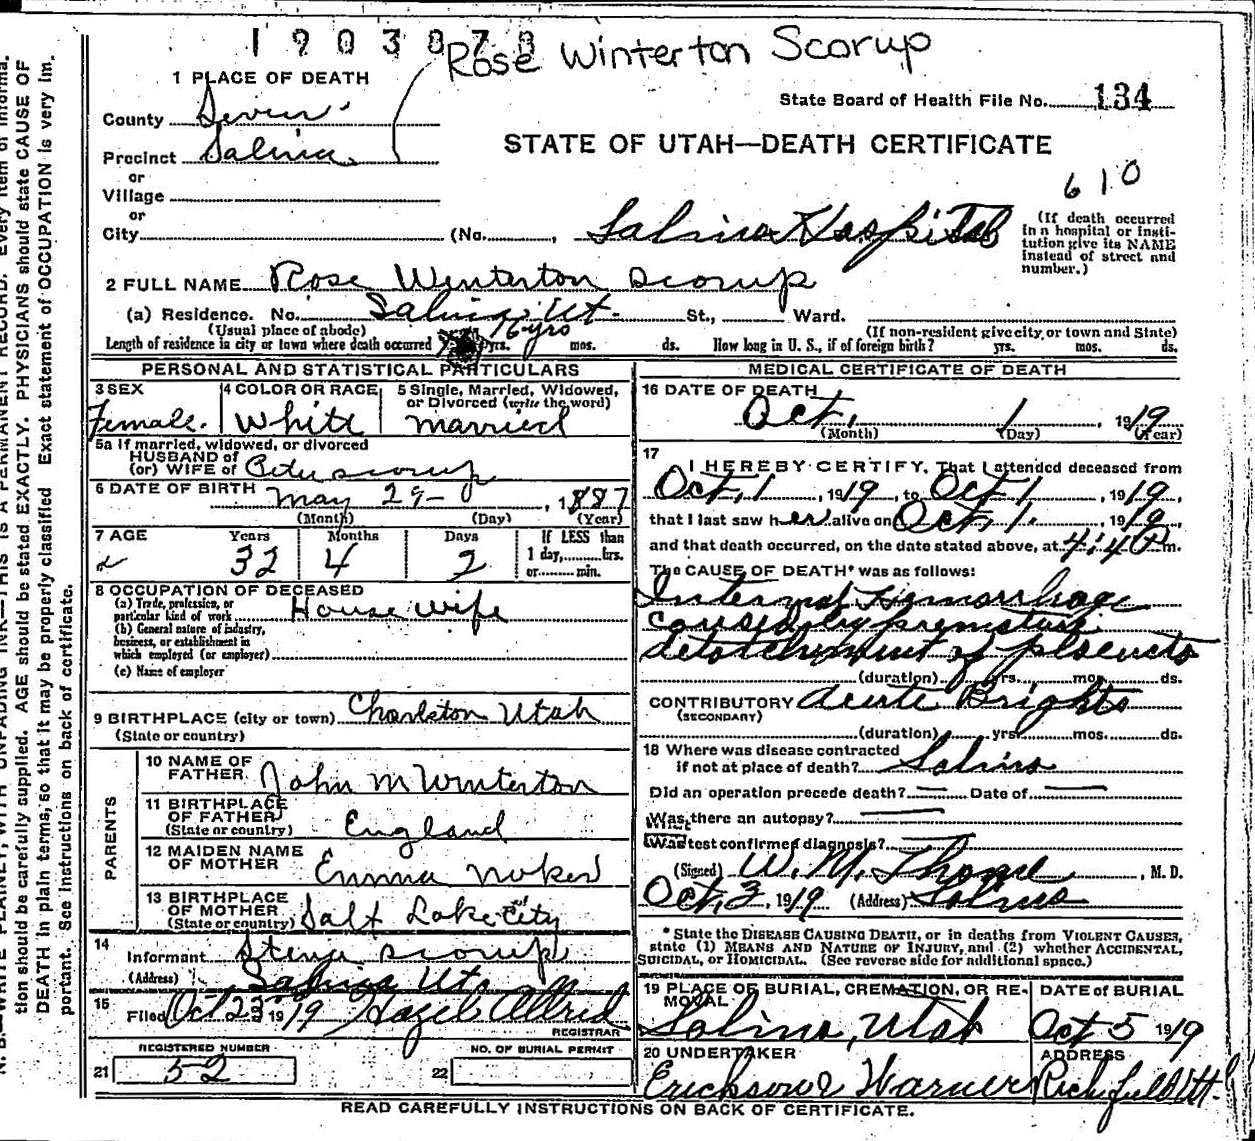 1903070
Rose Winterton Scorup
1 PLACE OF DEATH
State Board of Health File No. 134
County Sevier
STATE OF UTAH—DEATH CERTIFICATE
Precinct Salina
or
Village
610
or
City (No. , Salina Hospital
(If death occurred
in a hospital or insti-
tution give its NAME
instead of street and
number.)
2 FULL NAME Rose Winterton Scorup
(a) Residence. No. Salina Ut. St., Ward.
(Usual place of abode) (If non-resident give city or town and State)
Length of residence in city or town where death occurred 16 yrs yrs. mos. ds. How long in U. S., if of foreign birth? yrs. mos. ds.
PERSONAL AND STATISTICAL PARTICULARS
3 SEX
Female.
4 COLOR OR RACE
White
5 Single, Married, Widowed,
or Divorced (write the word)
married
5a If married, widowed, or divorced
HUSBAND of
(or) WIFE of Peter Scorup
6 DATE OF BIRTH May 29- , 1887
(Month) (Day) (Year)
7 AGE Years Months Days If LESS than
1 day, hrs.
or min.
32 4 2
8 OCCUPATION OF DECEASED
(a) Trade, profession, or
particular kind of work House wife
(b) General nature of industry,
business, or establishment in
which employed (or employer)
(c) Name of employer
9 BIRTHPLACE (city or town) Charlston Utah
(State or country)
PARENTS
10 NAME OF
FATHER John M Winterton
11 BIRTHPLACE
OF FATHER
(State or country) England
12 MAIDEN NAME
OF MOTHER Emma
13 BIRTHPLACE
OF MOTHER
(State or country) Salt Lake City
14
Informant Scorup
(Address) Salina Ut.
15
Filed Oct 22 1919 Hazel Allred
REGISTRAR
REGISTERED NUMBER
21 52
NO. OF BURIAL PERMIT
22
MEDICAL CERTIFICATE OF DEATH
16 DATE OF DEATH
Oct. 1 , 1919
(Month) (Day) (Year)
17
I HEREBY CERTIFY, That I attended deceased from
Oct, 1 , 1919, to Oct 1 , 1919,
that I last saw her alive on Oct, 1. , 1919,
and that death occurred, on the date stated above, at 4:40 P m.
The CAUSE OF DEATH* was as follows:
Internal Hemorrhage
caused by premature
detatchment of placenta
(duration) yrs. mos. ds.
CONTRIBUTORY Acute Brights
(SECONDARY)
(duration) yrs. mos. ds.
18 Where was disease contracted
if not at place of death? Salina
Did an operation precede death? — Date of —
Was there an autopsy? —
What test confirmed diagnosis?
(Signed) W. M. , M. D.
Oct, 3, 1919 (Address) Salina
* State the DISEASE CAUSING DEATH, or in deaths from VIOLENT CAUSES,
state (1) MEANS AND NATURE OF INJURY, and (2) whether ACCIDENTAL,
SUICIDAL, or HOMICIDAL. (See reverse side for additional space.)
19 PLACE OF BURIAL, CREMATION, OR RE-
MOVAL
Salina, Utah
DATE of BURIAL
Oct 5 1919
20 UNDERTAKER
Erickson & Warner
ADDRESS
Richfield Ut.
READ CAREFULLY INSTRUCTIONS ON BACK OF CERTIFICATE.
N. B.—WRITE PLAINLY, WITH UNFADING INK—THIS IS A PERMANENT RECORD. Every item of informa-
tion should be carefully supplied. AGE should be stated EXACTLY. PHYSICIANS should state CAUSE OF
DEATH in plain terms, so that it may be properly classified. Exact statement of OCCUPATION is very im-
portant. See instructions on back of certificate.